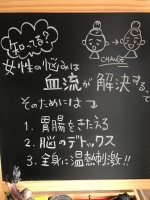 知ってる?
CHANGE
女性の悩みは
血流が解決するって
そのためには
1. 胃腸をきたえる
2. 脳のデトックス
3. 全身に温熱刺激!!